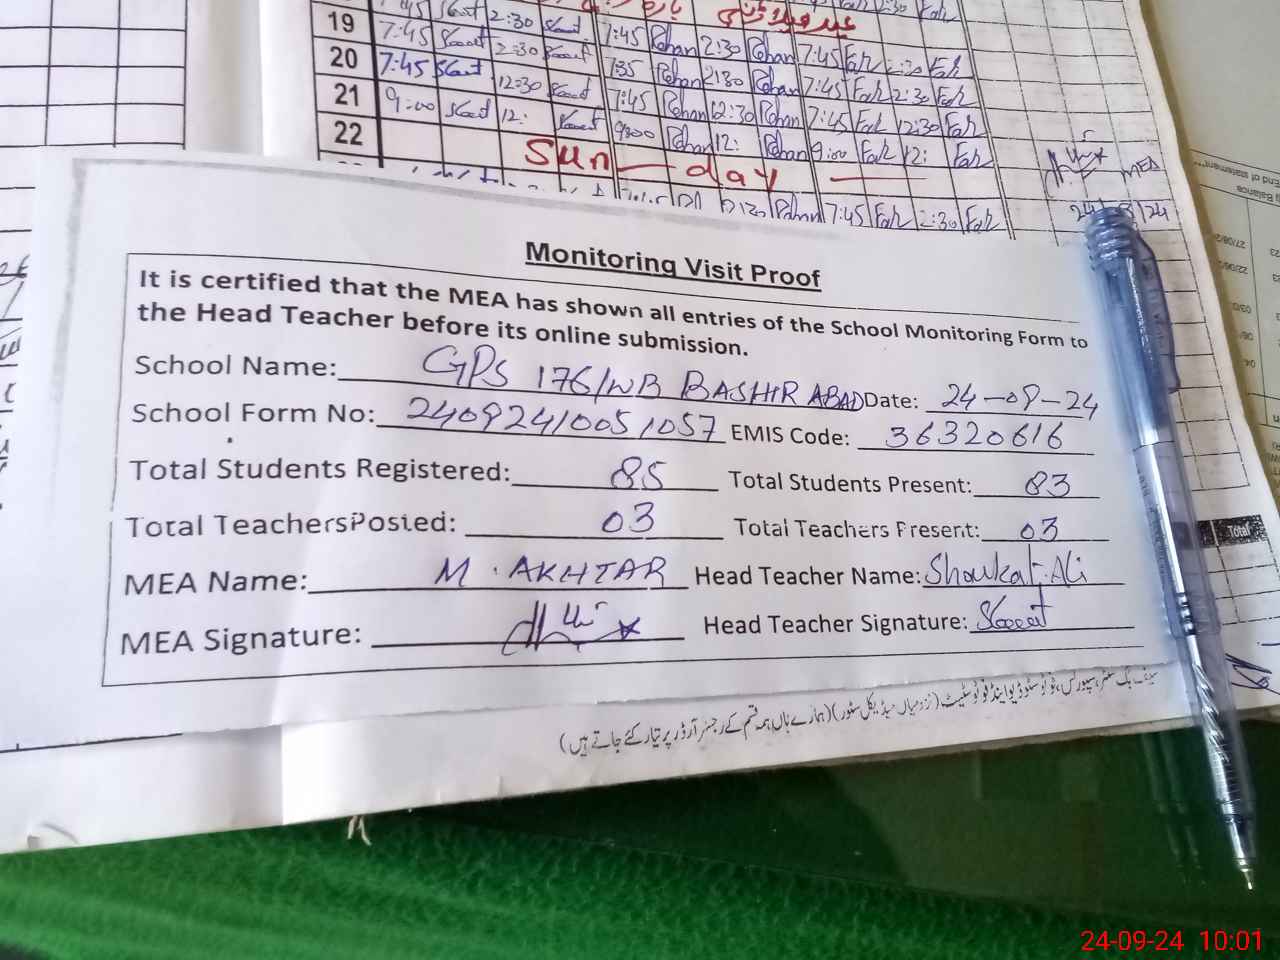 19 7:45 2:30 7:45 Rehan 2:30 Rehan 7:45 Fah 2:30 Fah
20 7:45 12:30 7:35 Rehan 2:30 Rehan 7:45 Fah 2:30 Fah
21 9:00 12: 7:45 Rehan 12:30 Rehan 7:45 Fah 12:30 Fah
22 9:00 Rehan 12: Rehan 9:00 Fah 12: Fah
Sun day
2:30 Rehan 7:45 Fah 2:30 Fah
MEA
Balance
End of statement
Total
Monitoring Visit Proof
It is certified that the MEA has shown all entries of the School Monitoring Form to
the Head Teacher before its online submission.
School Name: GPS 176/WB BASHIR ABAD Date: 24-09-24
School Form No: 24092410051057 EMIS Code: 36320616
Total Students Registered: 85 Total Students Present: 83
Total Teachers Posted: 03 Total Teachers Present: 03
MEA Name: M. AKHTAR Head Teacher Name: Shoukat Ali
MEA Signature: Head Teacher Signature:
(ہمارے ہاں ہمہ قسم کے رجسٹر آرڈر پر تیار کئے جاتے ہیں)
24-09-24 10:01